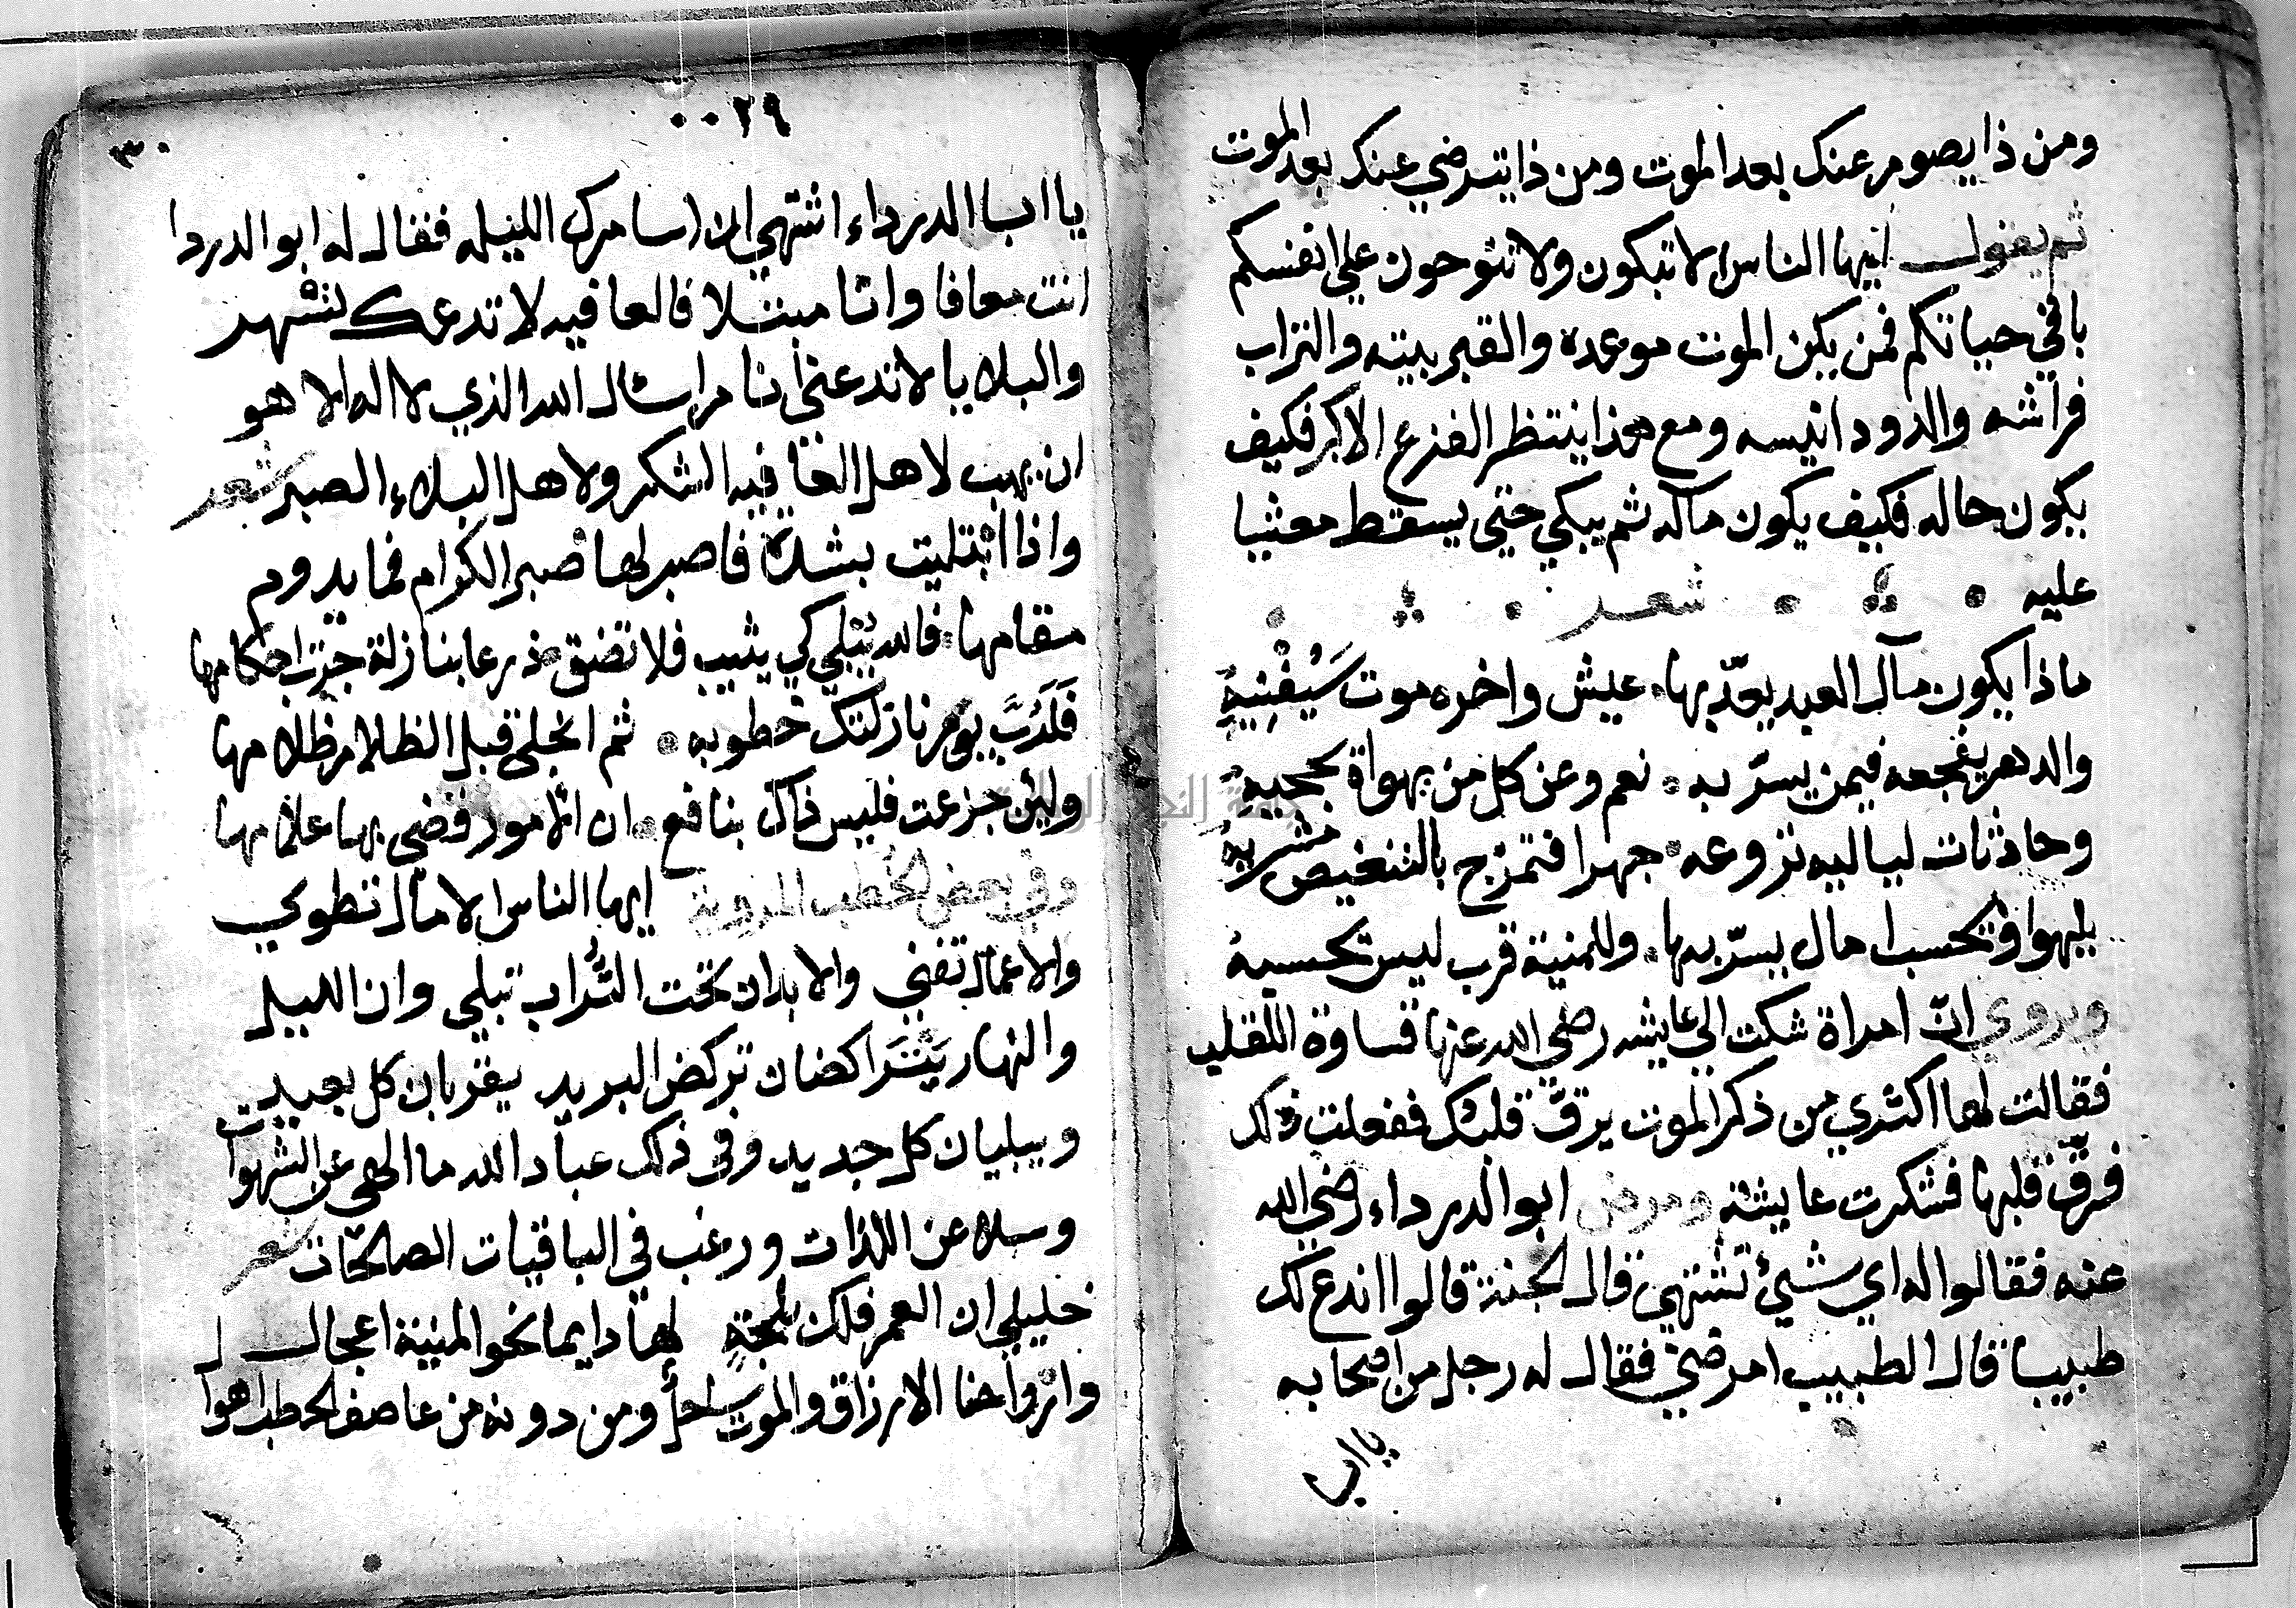 ومن ذا يصوم عنك بعد الموت ومن ذا يترضي عنك بعد الموت
ثم يقول ايها الناس الا تبكون ولا تنوحون علي انفسكم
باقي حياتكم فمن يكن الموت موعده والقبر بيته والتراب
فراشه والدود انيسه ومع هذا ينتظر الفزع الاكبر فكيف
يكون حاله فكيف يكون مآله ثم يبكي حتي يسقط مغشيا
عليه شعر
ماذا يكون مآل العبد يعدّ بها عيش واخره موت سَيُفْنِيهِ
والدهر يفجعه فيمن يسرّ به نعم وعن كل من يهواه يحجيه
وحادثات لياليه تروعه جهرا فتمزج بالتنغيص مشربه
يلهوا ويحسب امال يسرّ بها وللمنية قرب ليس تحسبه
ويروي انّ امراة شكت الي عايشه رضي الله عنها قساوة القلب
فقالت لها اكثري من ذكر الموت يرقّ قلبك ففعلت ذلك
فرقّ قلبها فشكرت عايشة ومرض ابو الدرداء رضي الله
عنه فقالوا له اي شيئ تشتهي قال الجنة قالوا اندع لك
طبيبا قال الطبيب امرضني فقال له رجل من اصحابه
يا ابا
٠٠٢٩
٣٠
يا ابا الدرداء اشتهي ان اسامرك الليله فقال له ابو الدردا
انت معافا وانا مبتلا فالعافيه لا تدعك لتسهر
والبلايا لا تدعني انام اسال الله الذي لا اله الا هو
ان يهب لاهل العافيه الشكر ولاهل البلاء الصبر شعر
واذا ابتليت بشدة فاصبر لها صبر الكرام فما يدوم
مقامها فالله يبتلي كي يثيب فلا تضق ذرعا بنازلة جرت احكامها
فَلَرُبَّ يوم نازلتك خطوبه ثم انجلي قبل الظلام ظلامها
ولئن جزعت فليس ذاك بنافع ان الامور قضي بها علامها
وفي بعض الخطب المروية ايها الناس الامال تطوي
والاعمال تفني والابدان تحت التُّراب تبلي وان الليل
والنهار يَتَرَاكضان تركض البريد يقربان كل بعيد
ويبليان كل جديد وفي ذلك عباد الله ما الهي عن الشهوات
وسلا عن اللذات ورغب في الباقيات الصالحات شعر
خليلي ان العمر فلك بلجة لها دايما نحو المنية اعجال
وارواحنا الارزاق والموت ساحل ومن دونه من عاصف الخطب اهوال